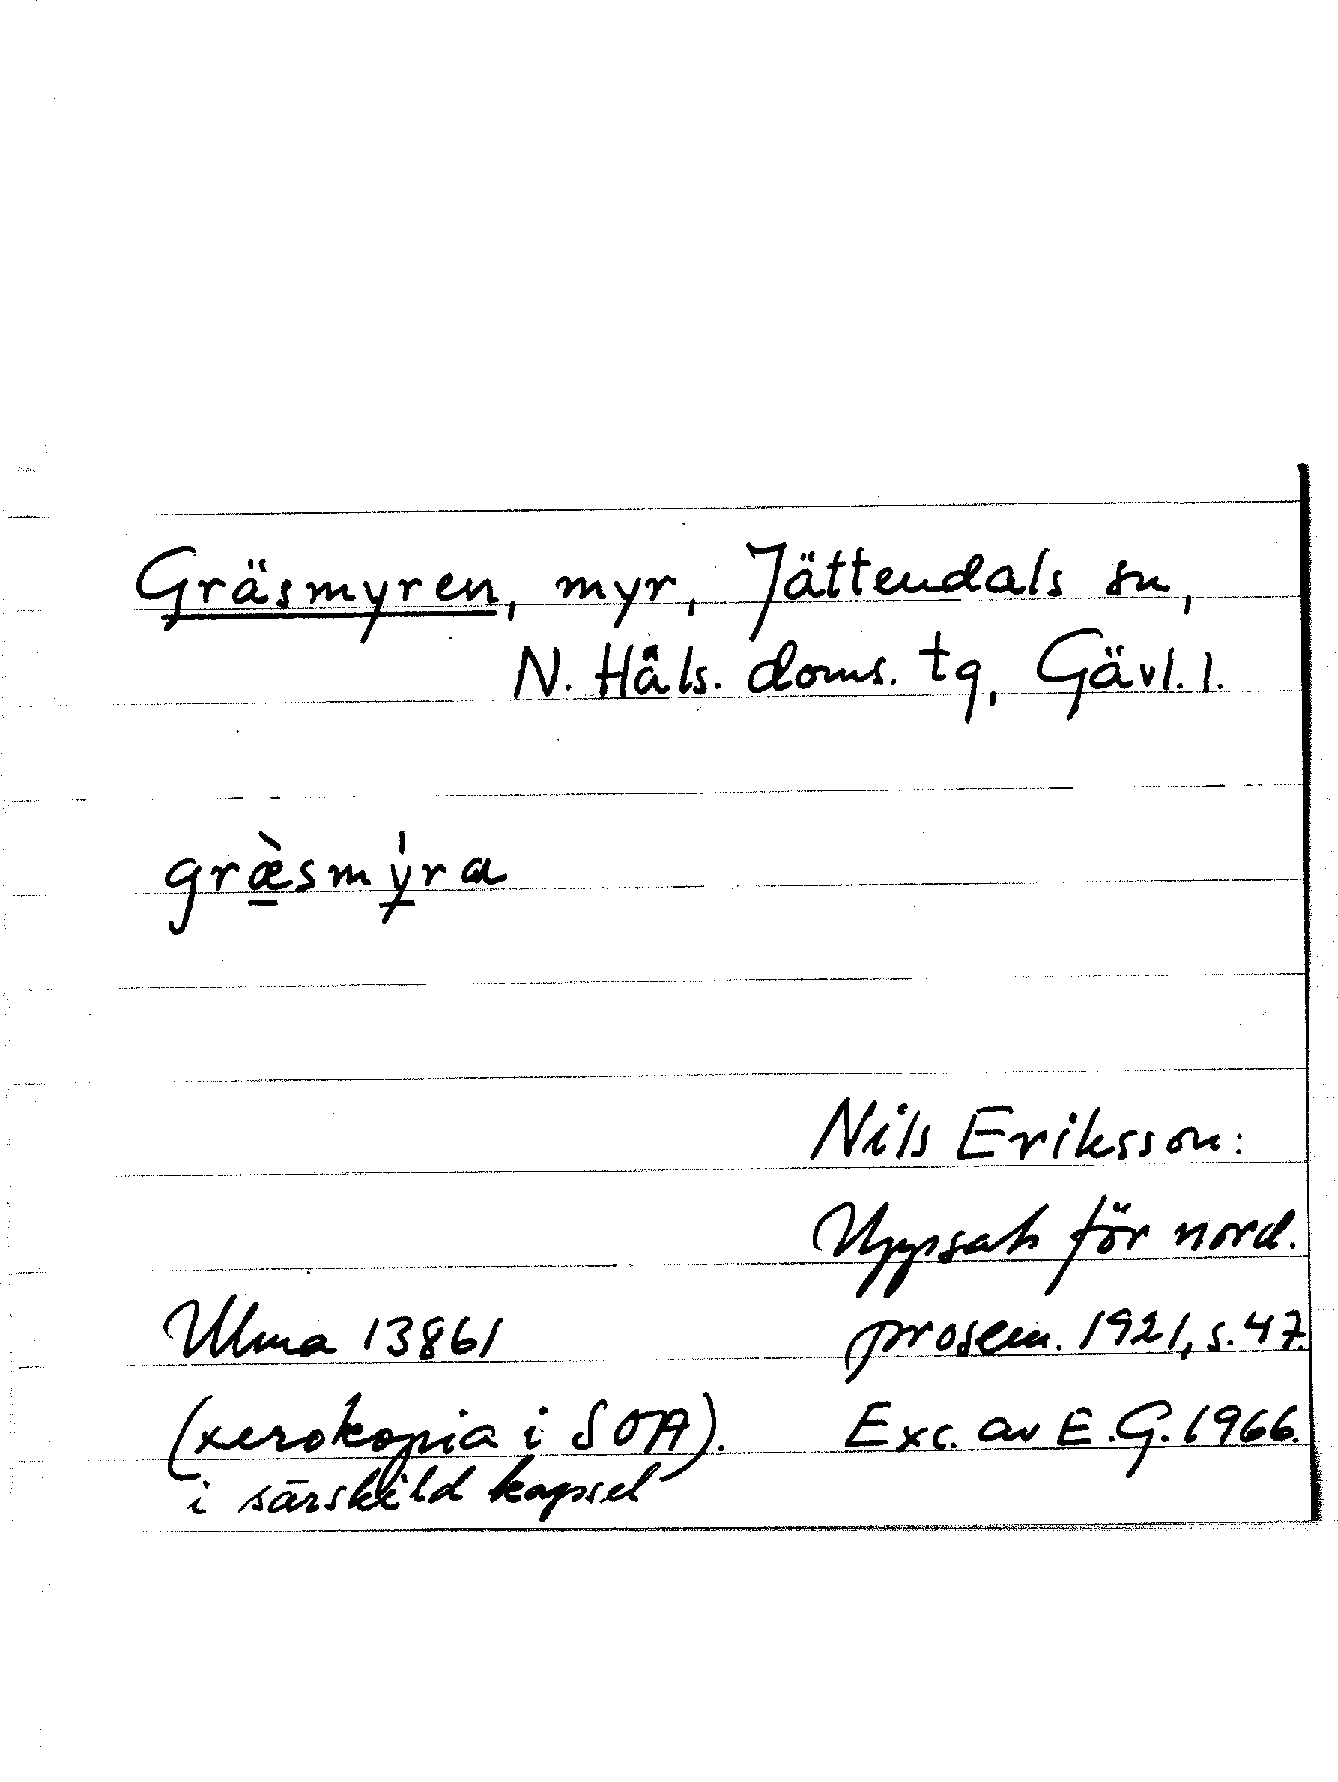 Gräsmyren, myr, Jättendals sn,
N. Häls. doms. tg, Gävl. l.
græ̀smýra
Nils Eriksson:
Uppsats för nord.
Ulma 13861 prosem. 1921, s. 47.
(xerokopia i SOA). Exc. av E.G. 1966.
i särskild kapsel